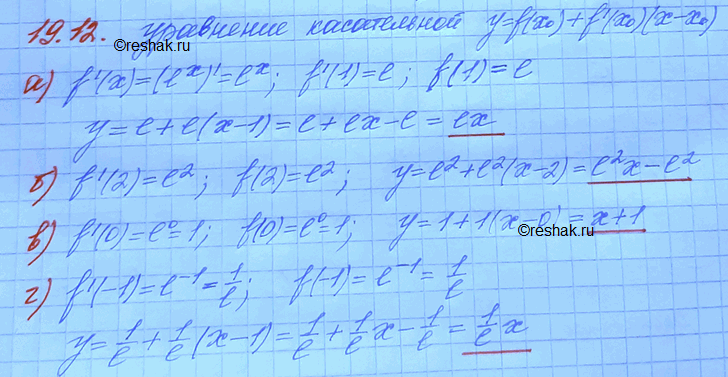 19.12. уравнение касательной y=f(x₀)+f'(x₀)(x-x₀)
©reshak.ru
а) f'(x)=(eˣ)'=eˣ; f'(1)=e; f(1)=e
y=e+e(x-1)=e+ex-e=ex
б) f'(2)=e²; f(2)=e²; y=e²+e²(x-2)=e²x-e²
в) f'(0)=e⁰=1; f(0)=e⁰=1; y=1+1(x-0)=x+1
©reshak.ru
г) f'(-1)=e⁻¹=1/e; f(-1)=e⁻¹=1/e
y=1/e+1/e(x-1)=1/e+1/e x-1/e=1/e x